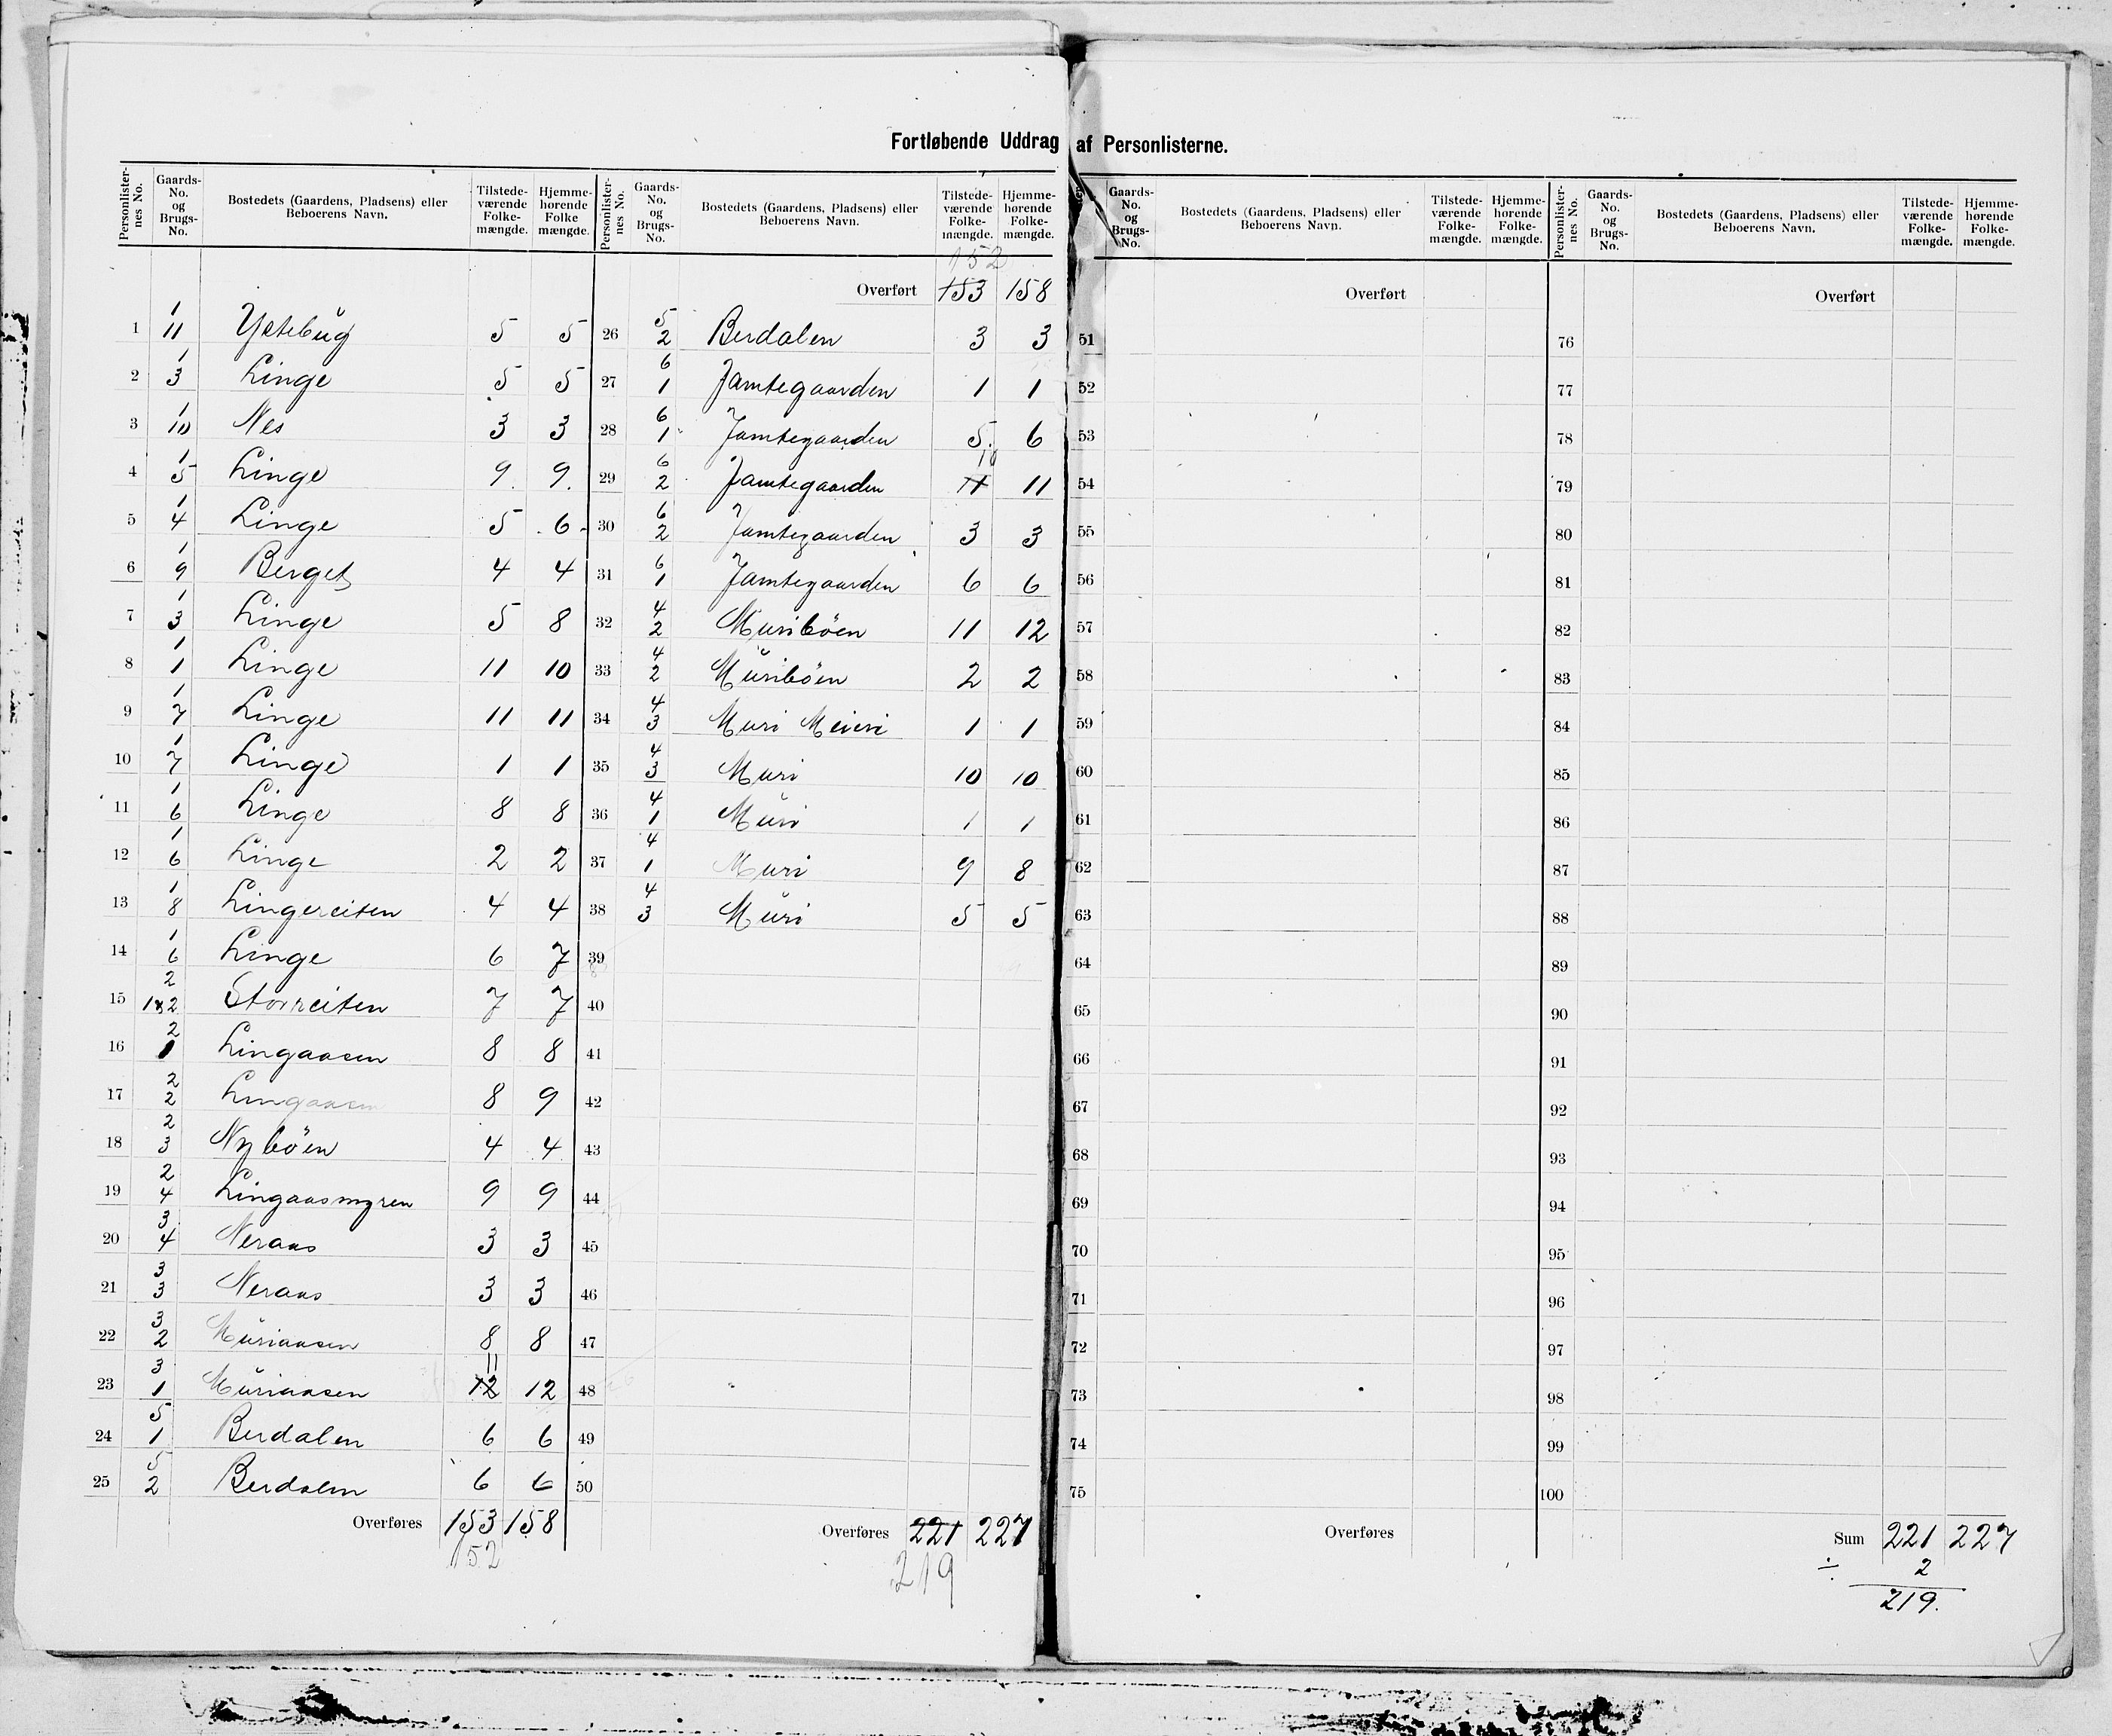 Fortløbende Uddrag af Personlisterne.
Personlister-nes No. Gaards-No. og Brugs-No. Bostedets (Gaardens, Pladsens) eller Beboerens Navn. Tilstede-værende Folke-mængde. Hjemme-hørende Folke mængde.
1 1 11 Ystebug 5 5
2 1 3 Linge 5 5
3 1 10 Nes 3 3
4 1 5 Linge 9 9
5 1 4 Linge 5 6
6 1 9 Berget 4 4
7 1 3 Linge 5 8
8 1 1 Linge 11 10
9 1 7 Linge 11 11
10 1 7 Linge 1 1
11 1 6 Linge 8 8
12 1 6 Linge 2 2
13 1 8 Lingereiten 4 4
14 1 6 Linge 6 7
15 2 1&2 Storreiten 7 7
16 2 1 Lingaasen 8 8
17 2 2 Lingaasen 8 9
18 2 3 Nybøen 4 4
19 2 4 Lingaasmyren 9 9
20 3 4 Neraas 3 3
21 3 3 Neraas 3 3
22 3 2 Muriaasen 8 8
23 3 1 Muriaasen 12 11 12
24 5 1 Berdalen 6 6
25 5 2 Berdalen 6 6
Overføres 153 158
152
Personlister-nes No. Gaards-No. og Brugs-No. Bostedets (Gaardens, Pladsens) eller Beboerens Navn. Tilstede-værende Folke-mængde. Hjemme-hørende Folke-mængde.
152
Overført 153 158
26 5 2 Berdalen 3 3
27 6 1 Jamtegaarden 1 1
28 6 1 Jamtegaarden 5 6
29 6 2 Jamtegaarden 11 10 11
30 6 2 Jamtegaarden 3 3
31 6 1 Jamtegaarden 6 6
32 4 2 Muribøen 11 12
33 4 2 Muribøen 2 2
34 4 3 Muri Meieri 1 1
35 4 3 Muri 10 10
36 4 1 Muri 1 1
37 4 1 Muri 9 8
38 4 3 Muri 5 5
39
40
41
42
43
44
45
46
47
48
49
50
Overføres 221 227
219
Gaards-No. og Brugs-No. Bostedets (Gaardens, Pladsens) eller Beboerens Navn. Tilstede-værende Folke-mængde. Hjemme-hørende Folke-mængde.
Overført
51
52
53
54
55
56
57
58
59
60
61
62
63
64
65
66
67
68
69
70
71
72
73
74
75
Overføres
Personlister-nes No. Gaards-No. og Brugs-No. Bostedets (Gaardens, Pladsens) eller Beboerens Navn. Tilstede-værende Folke-mængde. Hjemme-hørende Folke-mængde.
Overført
76
77
78
79
80
81
82
83
84
85
86
87
88
89
90
91
92
93
94
95
96
97
98
99
100
Sum 221 227
÷ 2
219.